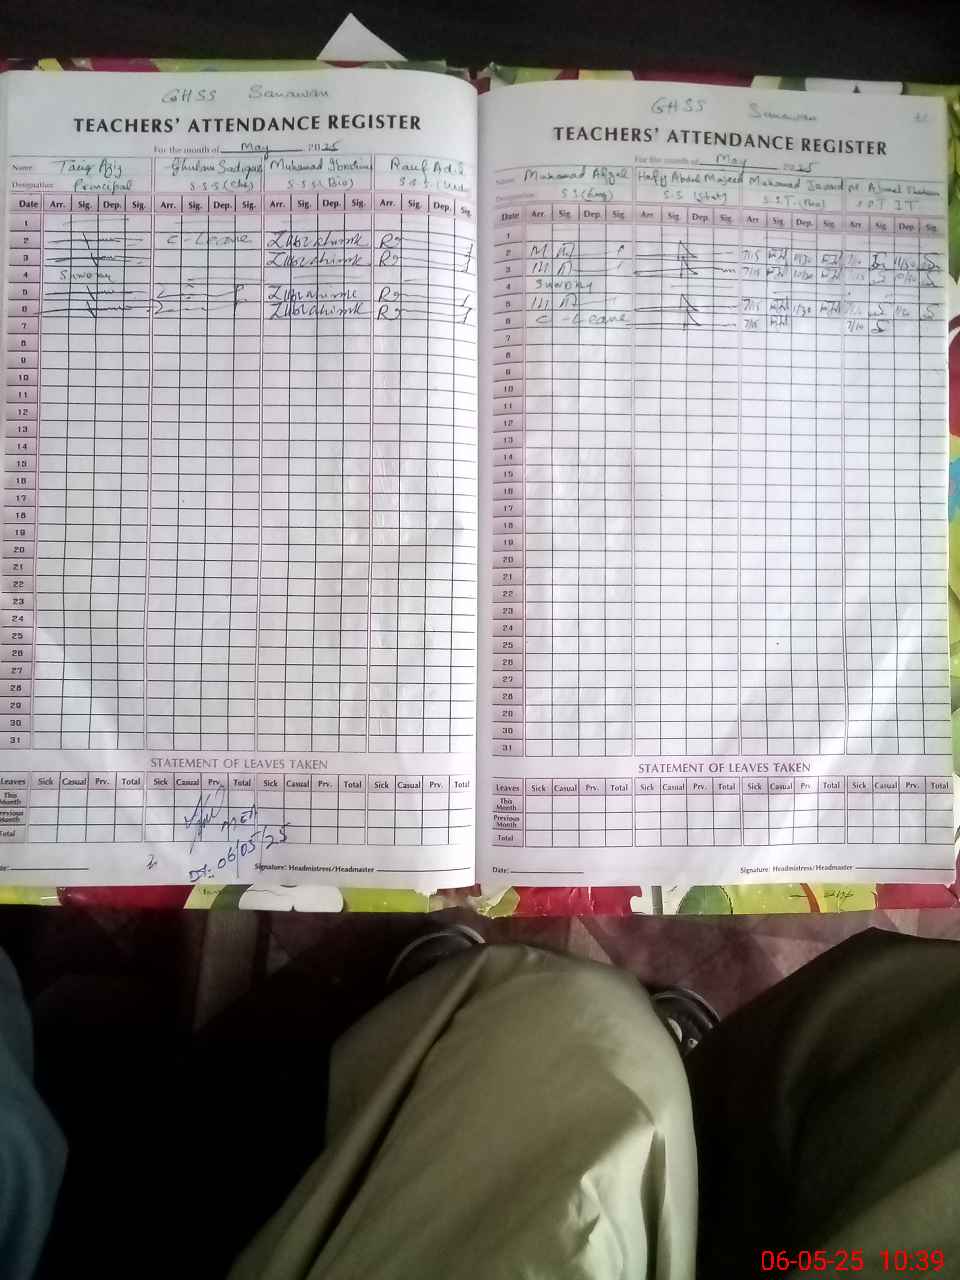 GHSS Sanawan
TEACHERS' ATTENDANCE REGISTER
For the month of May 2025
Name: Tariq Aziz Ghulam Sadique Muhamad Ibrahim Rauf
Designation: Principal S.S.S (Che) S.S.S (Bio) S.S.S
Date Arr. Sig. Dep. Sig. Arr. Sig. Dep. Sig. Arr. Sig. Dep. Sig. Arr. Sig. Dep. Sig.
1
2 C-Leave ZMbrahimk
3 ZMbrahimk
4 Sunday
5 ZMbrahimk
6 ZMbrahimk
7
8
9
10
11
12
13
14
15
16
17
18
19
20
21
22
23
24
25
26
27
28
29
30
31
STATEMENT OF LEAVES TAKEN
Leaves Sick Casual Prv. Total Sick Casual Prv. Total Sick Casual Prv. Total Sick Casual Prv. Total
This Month
Previous Month
Total
MEA
Dt: 06/05/25
Signature: Headmistress/Headmaster
GHSS Sanawan
TEACHERS' ATTENDANCE REGISTER
For the month of May 2025
Name: Muhamad Afzal Hafz Abdul Majeed Muhamad Javaid M. Ajmal
Designation: S.S (Eng) S.S (Stat) S.S.T. I.T
Date Arr. Sig. Dep. Sig. Arr. Sig. Dep. Sig. Arr. Sig. Dep. Sig. Arr. Sig. Dep. Sig.
1
2 7/15
3 7/15
4 Sunday
5 7/15
6 C-Leave 7/15 7/10
7
8
9
10
11
12
13
14
15
16
17
18
19
20
21
22
23
24
25
26
27
28
29
30
31
STATEMENT OF LEAVES TAKEN
Leaves Sick Casual Prv. Total Sick Casual Prv. Total Sick Casual Prv. Total Sick Casual Prv. Total
This Month
Previous Month
Total
Date: Signature: Headmistress/Headmaster
06-05-25 10:39